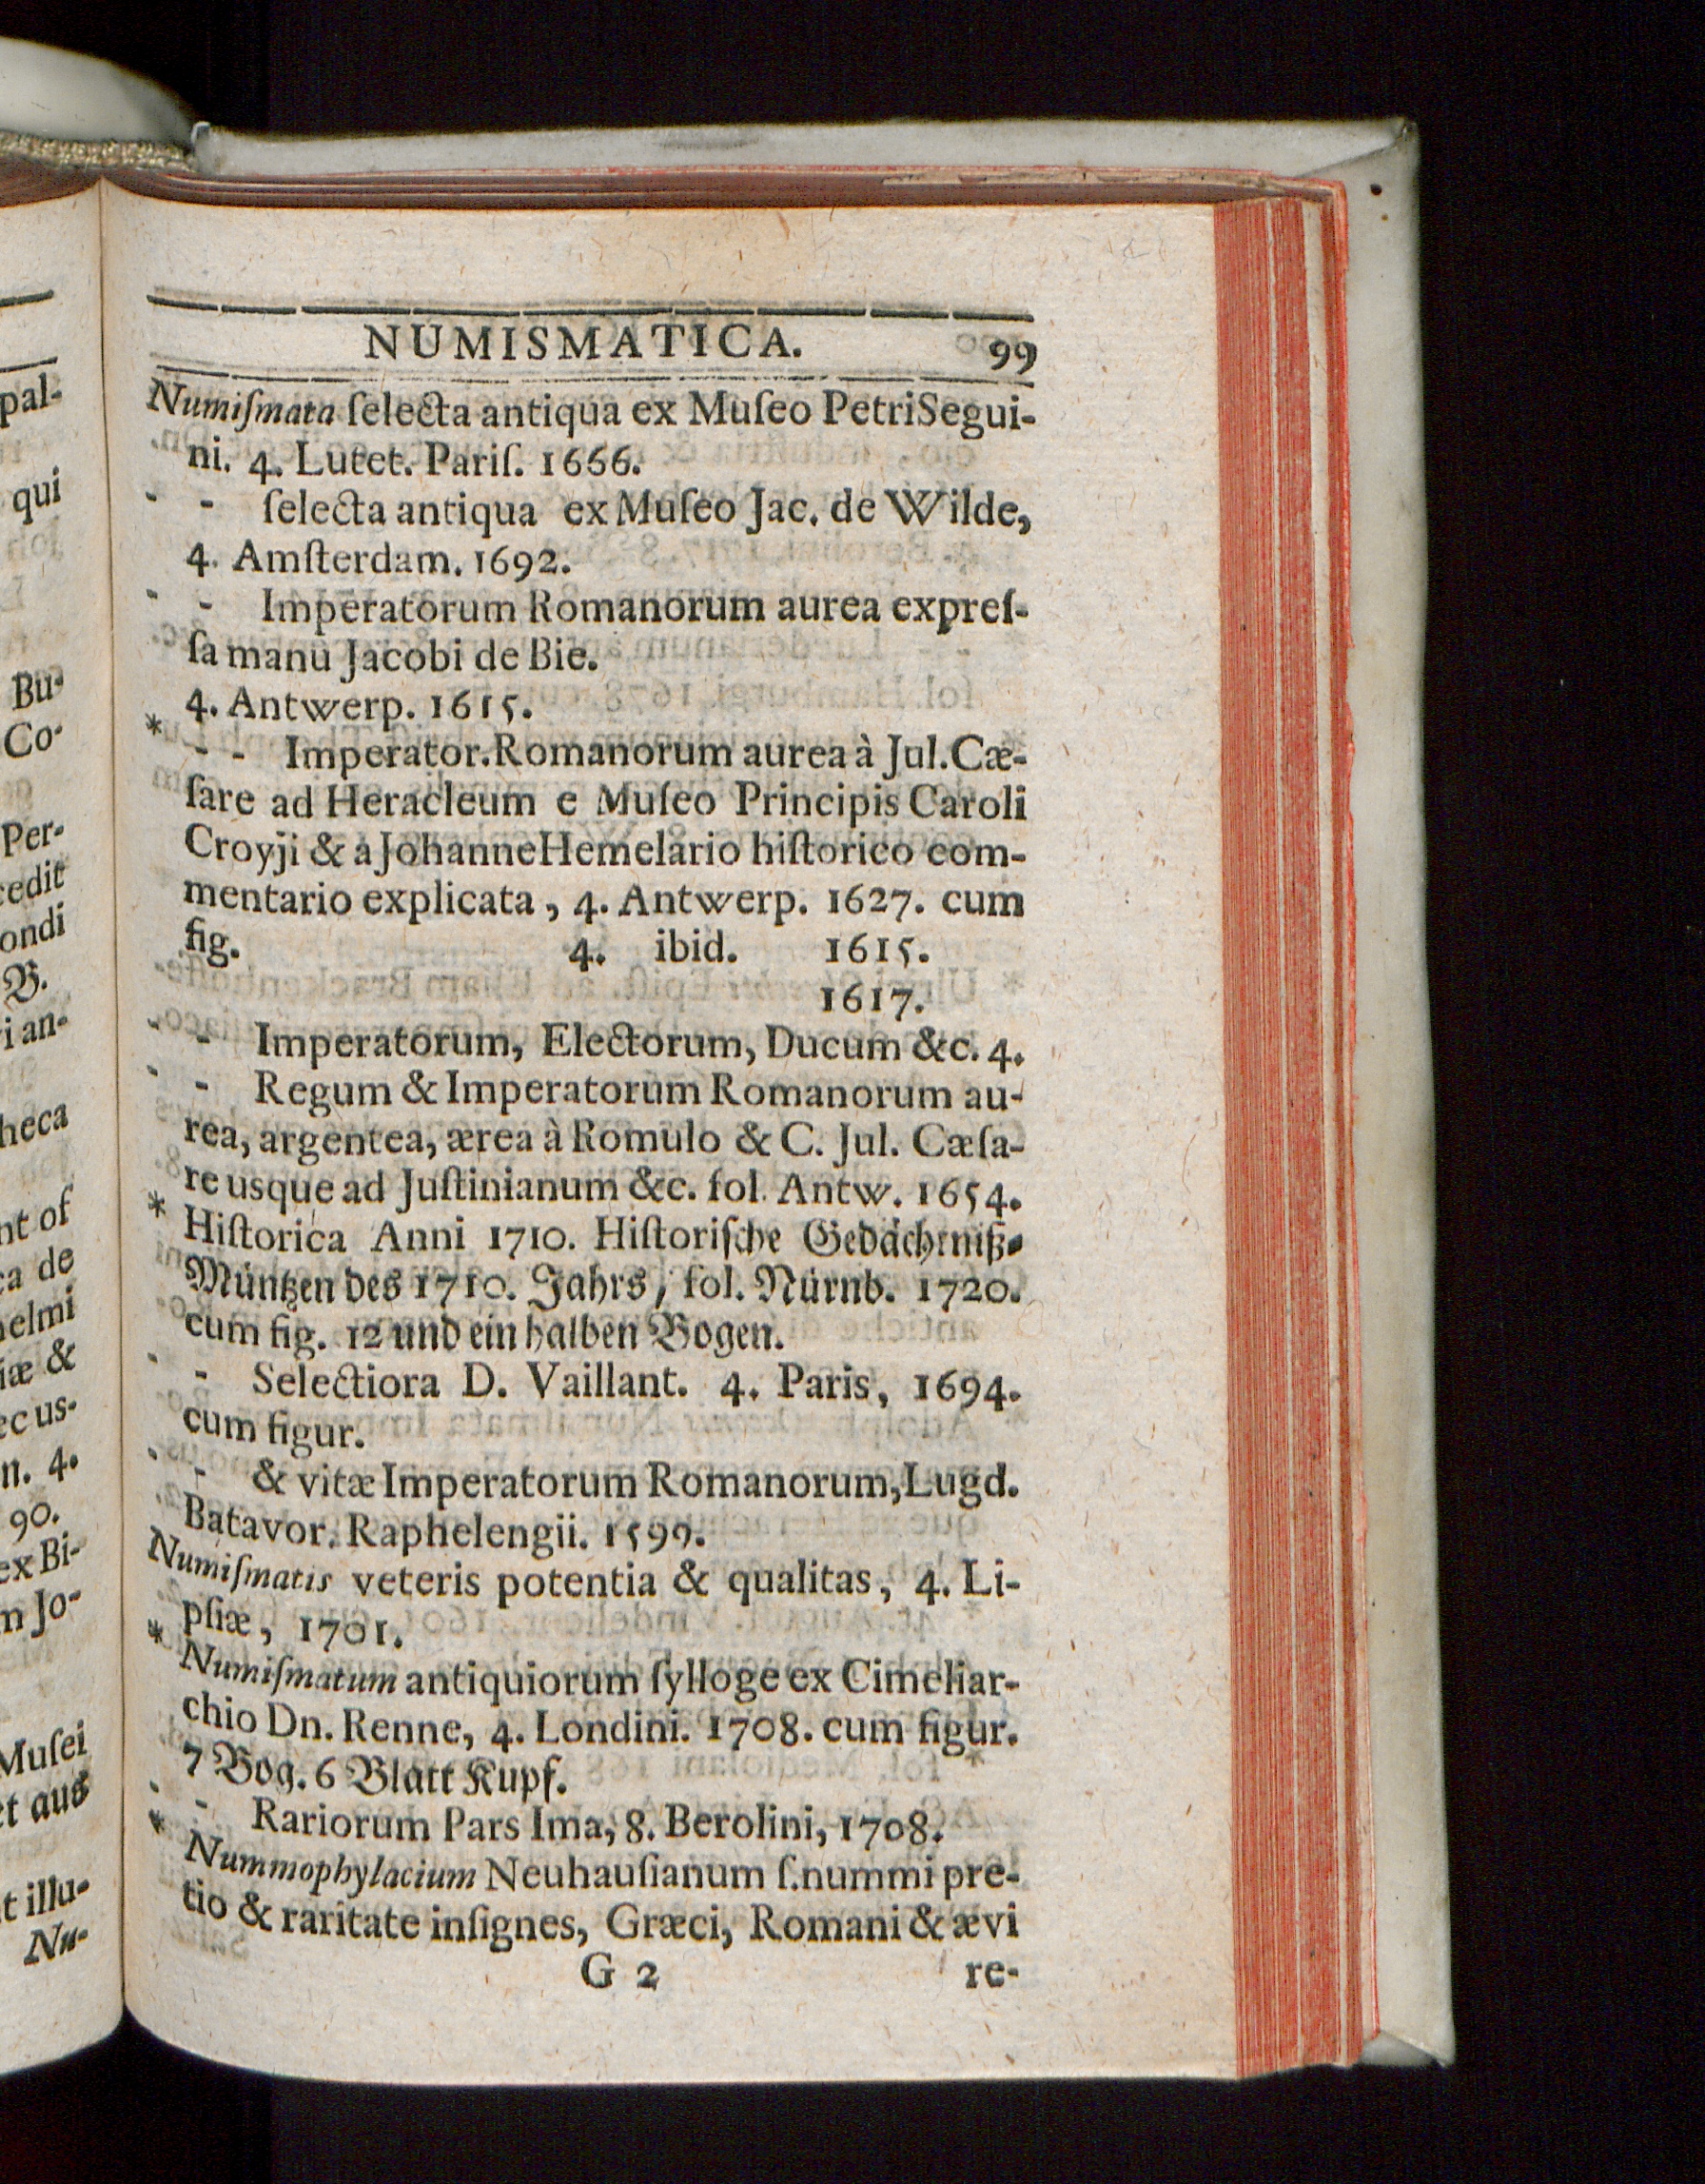 NUMISMATICA. 99
Numiſmata ſelecta antiqua ex Muſeo PetriSegui-
ni. 4. Lutet. Pariſ. 1666.
- - ſelecta antiqua ex Muſeo Jac. de Wilde,
4. Amſterdam. 1692.
- - Imperatorum Romanorum aurea expreſ-
ſa manu Jacobi de Bie.
4. Antwerp. 1615.
* - - Imperator. Romanorum aurea à Jul. Cæ-
ſare ad Heracleum e Muſeo Principis Caroli
Croyji & à Johanne Hemelario hiſtorico com-
mentario explicata, 4. Antwerp. 1627. cum
fig. 4. ibid. 1615.
1617.
- - Imperatorum, Electorum, Ducum &c. 4.
- - Regum & Imperatorum Romanorum au-
rea, argentea, ærea à Romulo & C. Jul. Cæſa-
re usque ad Juſtinianum &c. fol. Antw. 1654.
* Hiſtorica Anni 1710. Hiſtoriſche Gedächtniß-
Müntzen des 1710. Jahrs, fol. Nürnb. 1720.
cum fig. 12 und ein halben Bogen.
- - Selectiora D. Vaillant. 4. Paris, 1694.
cum figur.
- - & vitæ Imperatorum Romanorum, Lugd.
Batavor. Raphelengii. 1599.
Numiſmatis veteris potentia & qualitas, 4. Li-
pſiæ, 1701.
* Numiſmatum antiquiorum ſylloge ex Cimeliar-
chio Dn. Renne, 4. Londini. 1708. cum figur.
7 Bog. 6 Blatt Kupf.
- - Rariorum Pars Ima, 8. Berolini, 1708.
* Nummophylacium Neuhauſianum ſ. nummi pre-
tio & raritate inſignes, Græci, Romani & ævi
G 2 re-